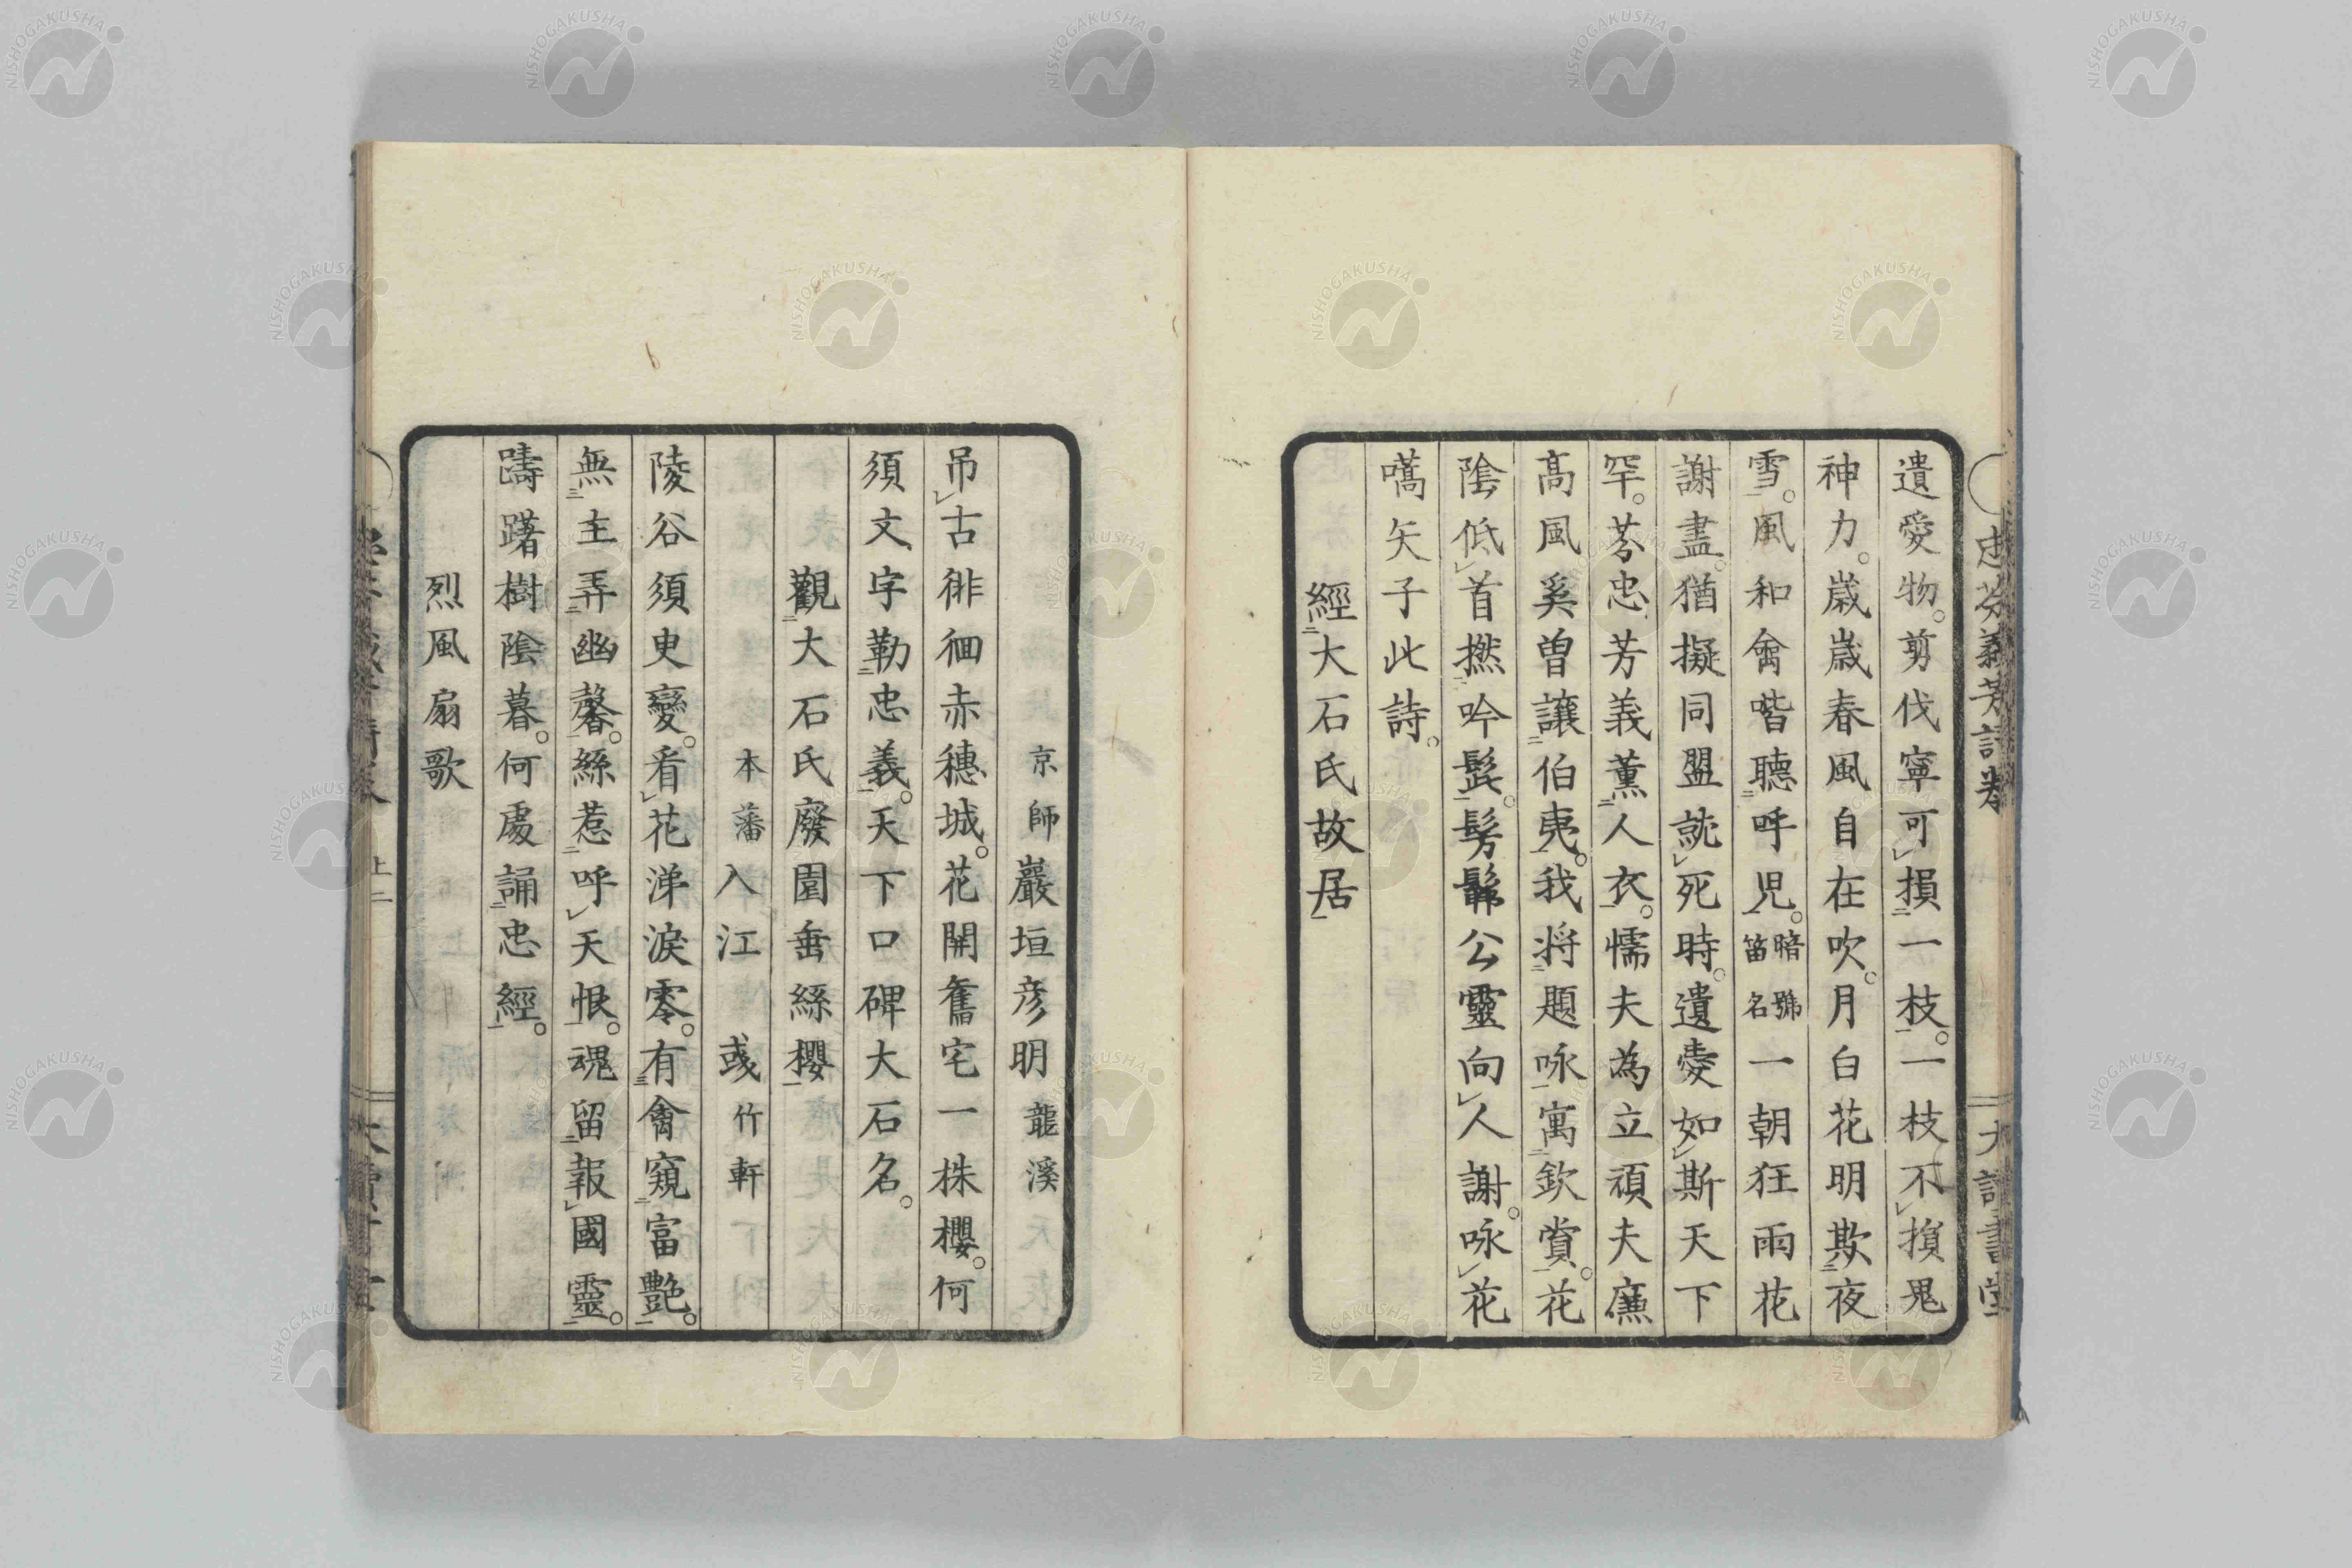 遺愛物。剪伐寧可㆑損㆓一枝㆒。一枝不㆑損鬼
神力。歳歳春風自在吹。月白花明欺㆓夜
雪㆒。風和禽喈聽㆓呼児㆒。暗號笛名一朝狂雨花
謝盡。猶擬同盟就㆑死時。遺愛如㆑斯天下
罕。芬忠芳義薫㆓人衣㆒。懦夫為立頑夫廉
高風奚曽讓㆓伯夷㆒。我将㆘題㆓咏寓㆗欽賞㆖。花
陰低㆑首撚㆓吟髭㆒。髣髴公靈向㆑人謝。咏㆑花
嚆矢子此詩。
經㆓大石氏故居㆒
忠芬義芳詩巻
大讀書堂
京師 巖垣彦明 龍溪
吊㆑古徘徊赤穗城。花開舊宅一株櫻。何
須文字勒㆓忠義㆒。天下口碑大石名。
觀㆓大石氏廢園垂絲櫻㆒
本藩 入江 彧 竹軒
陵谷須臾變。看㆑花涕淚零。有㆔禽窺㆓富艶㆒。
無㆔主弄㆓幽馨㆒。絲惹㆓呼㆑天恨㆒。魂留㆓報㆑國靈㆒。
躊躇樹陰暮。何處誦㆓忠經㆒。
烈風扇歌
上二